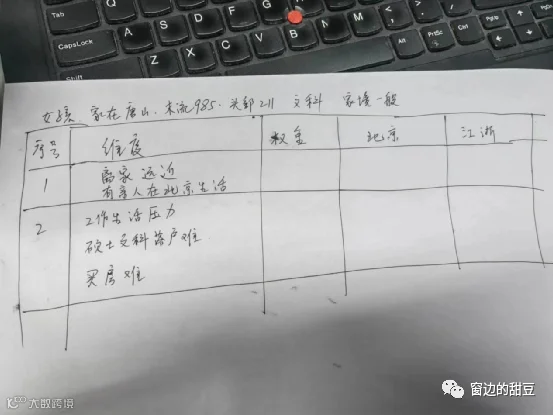 CapsLock
Shift
Ctrl
Fn
Alt
Alt
Ctrl
PrtSc
PgUp
PgDn
A
Z
X
C
V
B
N
M
女孩 家在唐山. 末流985. 头部211 文科 家境一般
序号 维度 权重 北京 江浙
1 离家远近
有亲人在北京生活
2 工作生活压力
硕士文科落户难
买房难
大数跨境
窗边的甜豆